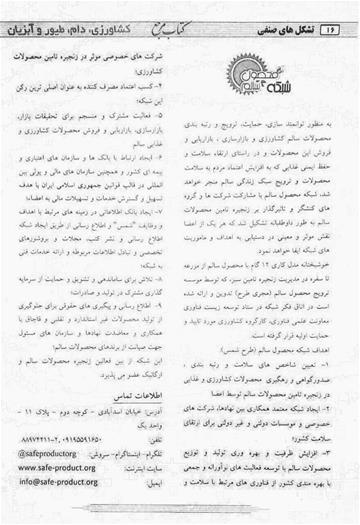 ۱۶ تشکل های صنفی
کتاب مرجع
کشاورزی، دام، طیور و آبزیان
شبکه محصول سالم
به منظور توانمند سازی، حمایت، ترویج و رتبه بندی
محصولات سالم کشاورزی و بازارسازی ، بازاریابی و
فروش این محصولات و در راستای ارتقاء سلامت و
حفظ ایمنی غذایی که به افزایش اعتماد مردم به سلامت
محصولات و ترویج سبک زندگی سالم منجر خواهد
شد، شبکه محصول سالم با مشارکت شرکت ها و گروه
های کنشگر و تاثیرگذار بر زنجیره تامین محصولات
سالم به طور داوطلبانه تشکیل شد که هر یک از اعضا
نقش موثر و معینی در دستیابی به اهداف و ماموریت
های شبکه ایفا خواهد نمود.
خوشبختانه مدل کاری ۱۲ گام با محصول سالم از مزرعه
تا سفره در مدیریت زنجیره تامین سبز، که توسط موسسه
ترویج محصول سالم (مجری طرح) تدوین و ارائه شده
است در اتاق فکر شبکه در ستاد توسعه زیست فناوری
معاونت علمی فناوری، کارگروه کشاورزی مورد تایید و
حمایت اولیه قرار گرفته است.
اهداف شبکه محصول سالم (طرح شمس):
۱- تعیین شاخص های سلامت و رتبه بندی ،
صدورگواهی و رهگیری محصولات کشاورزی و غذایی
در زنجیره تامین محصولات سالم توسط اعضا
۲- ایجاد شبکه معتمد همکاری بین نهادها، شرکت های
خصوصی و موسسات دولتی و غیر دولتی برای ارتقای
سلامت کشور؛
۳- افزایش ظرفیت و بهره وری تولید و توزیع
محصولات سالم با توسعه فعالیت های نوآورانه و جمعی
با بهره مندی کشور از فناوری های مرتبط با سلامت و
شرکت های خصوصی موثر در زنجیره تامین محصولات
کشاورزی؛
۴- کسب اعتماد مصرف کننده به عنوان اصلی ترین رکن
این شبکه؛
۵- فعالیت مشترک و منسجم برای تحقیقات بازار،
بازارسازی، بازاریابی و فروش محصولات کشاورزی و
غذایی سالم
۶- ایجاد ارتباط با بانک ها و سازمان های اعتباری و
بیمه ای کشور و همچنین سازمان های مالی و پولی بین
المللی در قالب قوانین جمهوری اسلامی ایران با هدف
تسهیل و گسترش خدمات و تسهیلات مالی به اعضا؛
۷- ایجاد بانک اطلاعاتی در زمینه های مرتبط با اهداف
و وظایف "شمس" و اطلاع رسانی از طریق ایجاد شبکه
اطلاع رسانی و نشر کتب، مجلات و بروشورهای
تخصصی و تبادل اطلاعات مربوطه و ارائه خدمات فنی
به شبکه؛
۸- تلاش برای ساماندهی و تشویق و حمایت از سرمایه
گذاری مشترک در تولید و صادرات؛
۹- اطلاع رسانی و پیگیری های حقوقی برای جلوگیری
از تولید محصولات غیر استاندارد و تقلبی و قاچاق با
همکاری و معاضدت نهادها و سازمان های مسئول
جهت صیانت از برندهای محصولات سالم؛
این شبکه از بین فعالین زنجیره محصولات سالم و
ارگانیک عضو می پذیرد.
اطلاعات تماس
آدرس: خیابان اسدآبادی - کوچه دوم - پلاک ۱۱ -
واحد یک
تلفن: ۰۹۱۹۵۵۹۱۶۵۰ ،۸۸۹۷۴۴۱۱-۲
تلگرام -اینستاگرام -سروش: @safeproductorg
سایت اینترنت: www.safe-product.org
ایمیل: info@safe-product.org